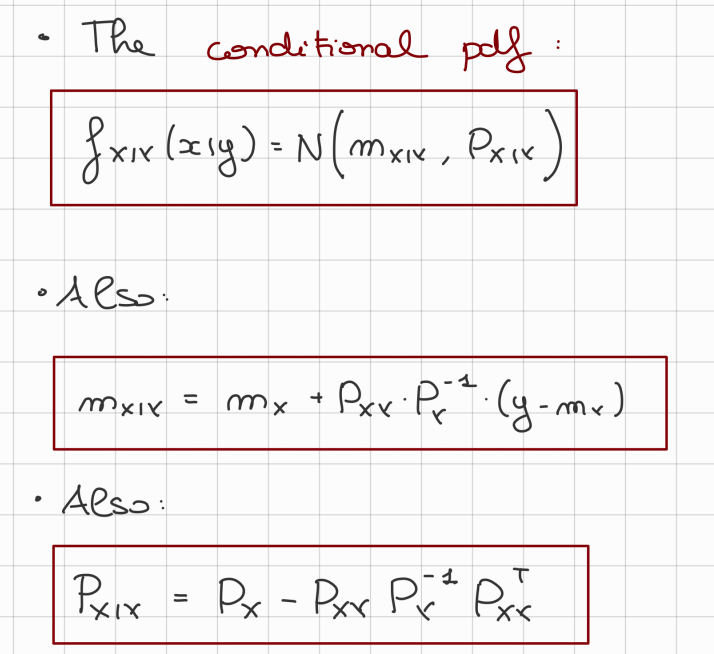 • The conditional pdf :
f_{X|Y}(x|y) = N(m_{X|Y}, P_{X|Y})
• Also:
m_{X|Y} = m_X + P_{XY} · P_Y^{-1} · (y - m_Y)
• Also:
P_{X|Y} = P_X - P_{XY} P_Y^{-1} P_{XY}^T